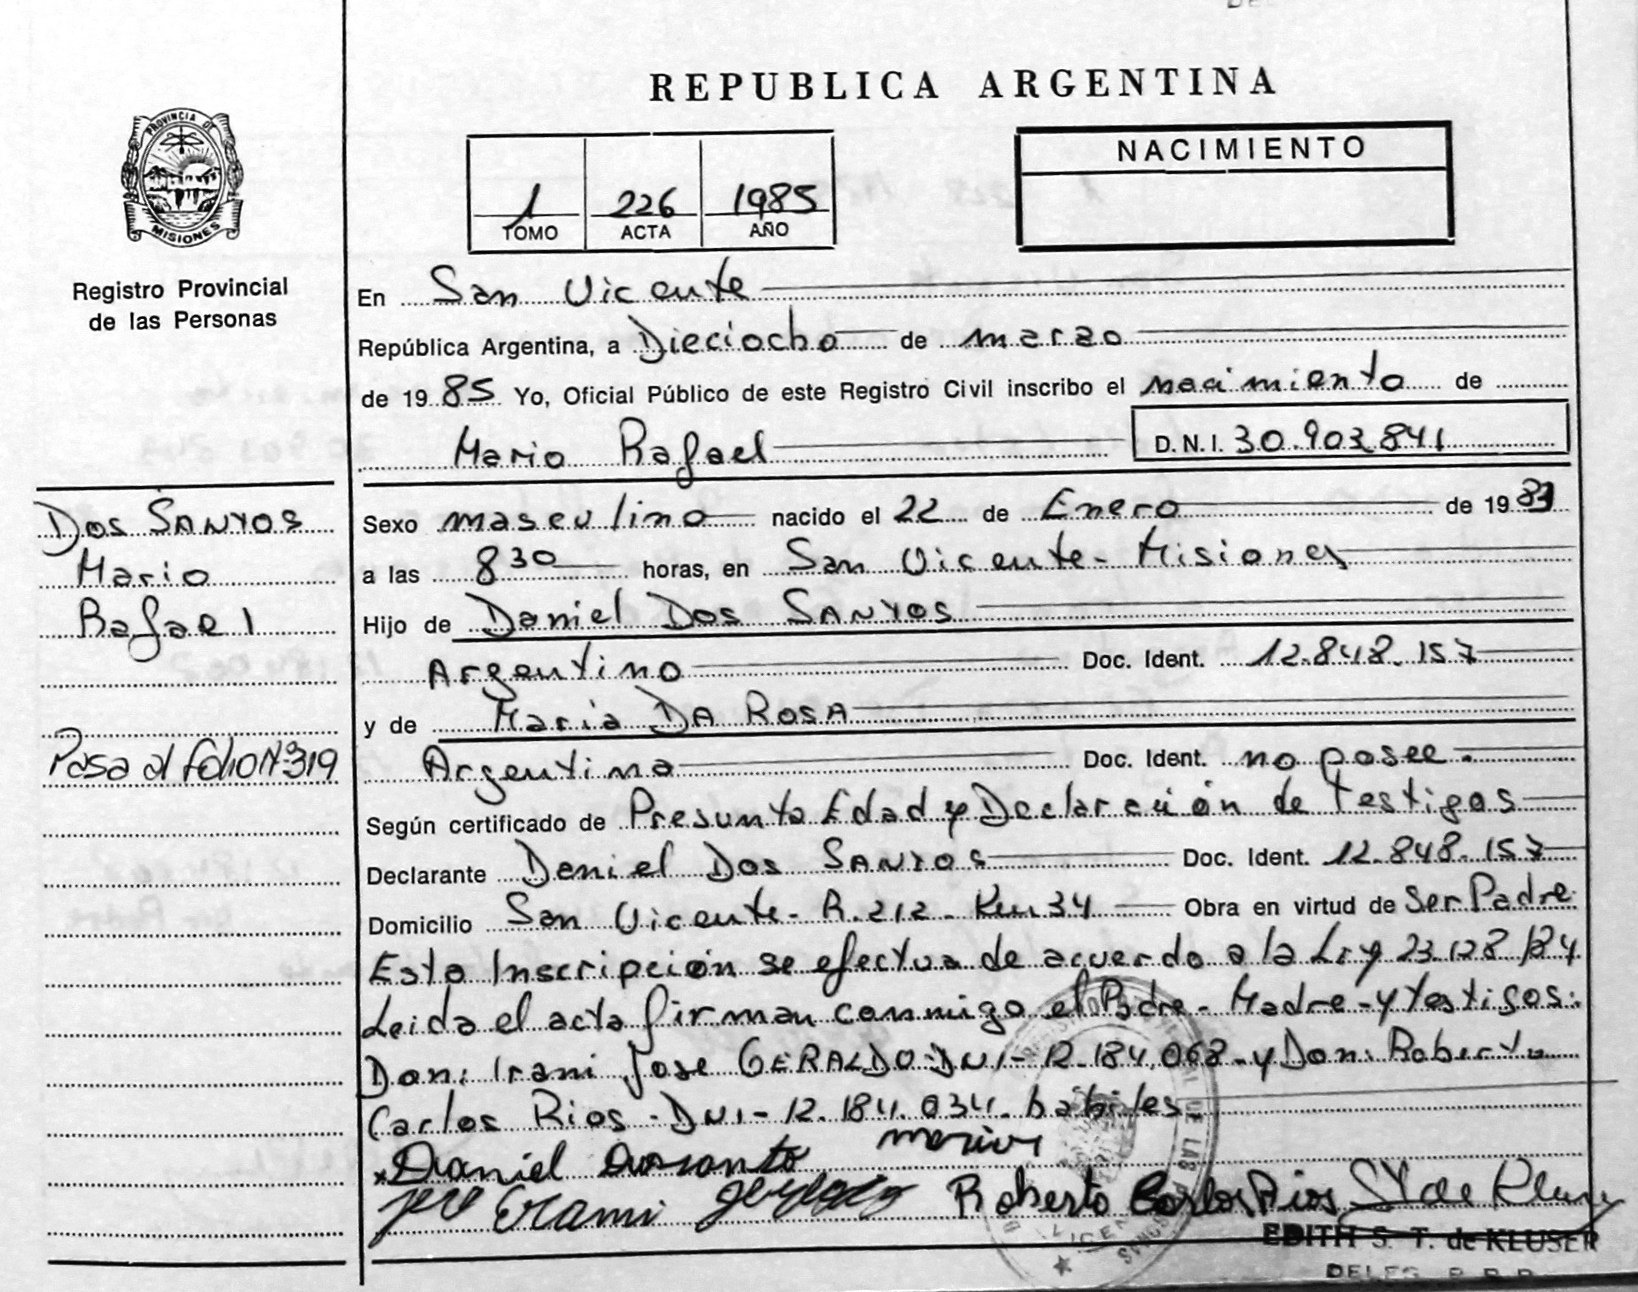 REPUBLICA ARGENTINA
PROVINCIA DE
MISIONES
Registro Provincial
de las Personas
1 226 1985
TOMO ACTA AÑO
NACIMIENTO
En San Vicente
República Argentina, a Dieciocho de marzo
de 1985 Yo, Oficial Público de este Registro Civil inscribo el nacimiento de
Mario Rafael D.N.I. 30.903.841
Dos SANTOS
Mario
Rafael
Pasa al folio Nº 319
Sexo masculino nacido el 22 de Enero de 19
a las 8 30 horas, en San Vicente - Misiones
Hijo de Daniel Dos SANTOS
Argentino Doc. Ident. 12.848.157
y de Maria DA ROSA
Argentina Doc. Ident. no posee.
Según certificado de Presunta Edad y Declaración de Testigos
Declarante Daniel Dos SANTOS Doc. Ident. 12.848.157
Domicilio San Vicente - R.212 - Km 34 Obra en virtud de Ser Padre
Esta Inscripción se efectua de acuerdo a la Ley 23.128/84.
Leida el acta firman conmigo el Padre - Madre - y testigos:
Don: Irani Jose GERALDO - DNI - 12.184.068 - y Don: Roberto
Carlos Rios - DNI - 12.184.034. habiles.
Daniel
Roberto Carlos Rios
EDITH S. T. de KLUSER